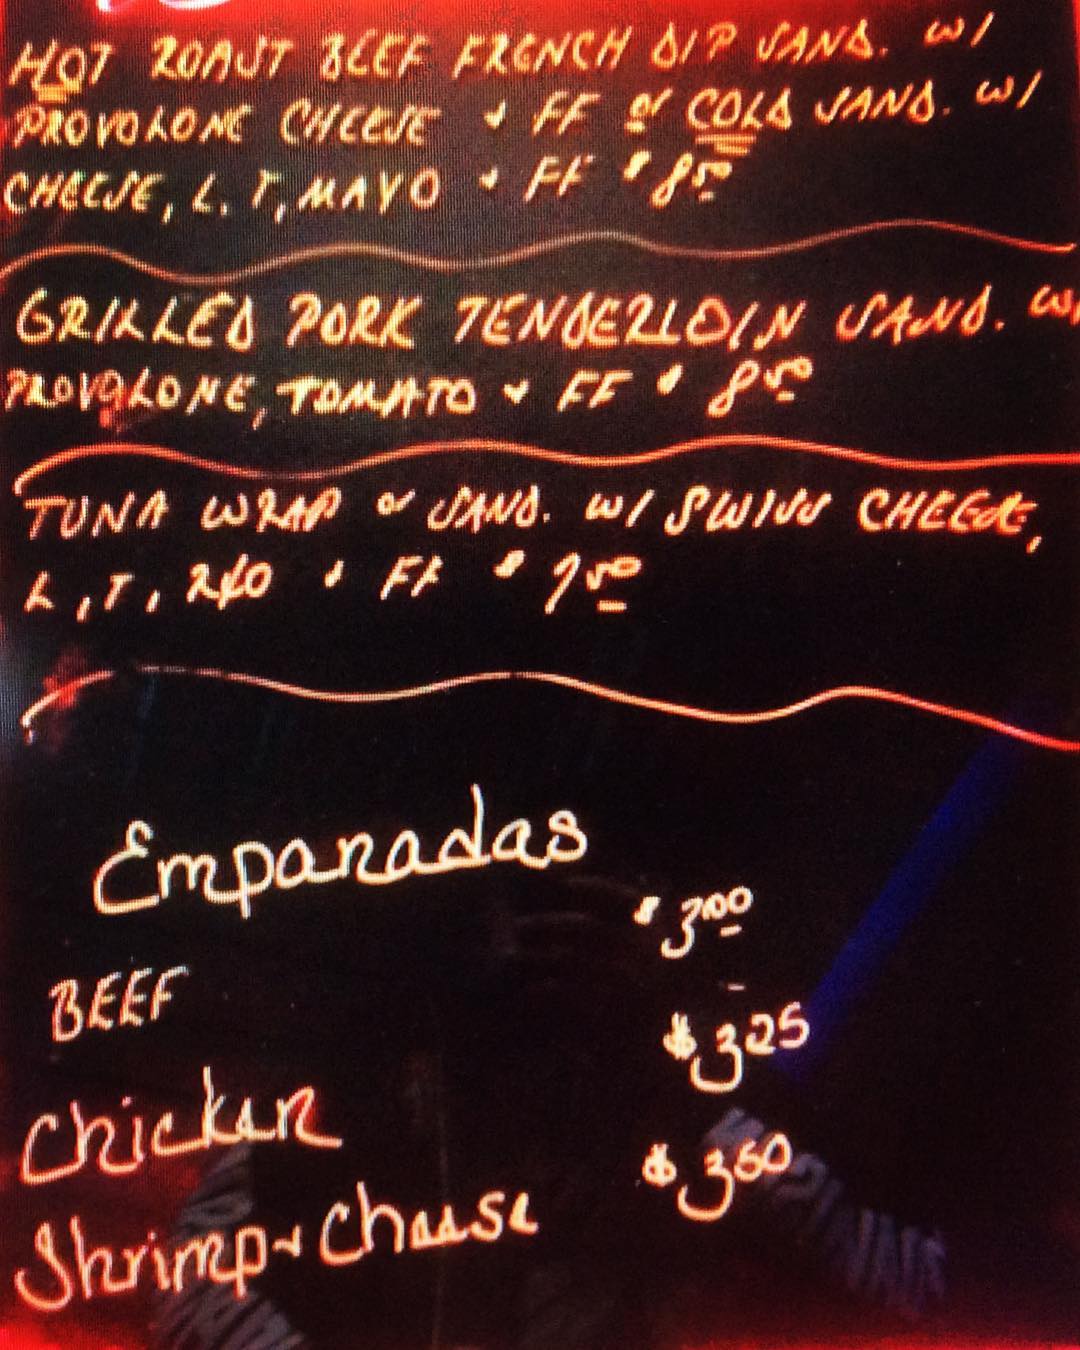 HOT ROAST BEEF FRENCH DIP SAND. W/
PROVOLONE CHEESE + FF or COLD SAND. W/
CHEESE, L, T, MAYO + FF $8.50
GRILLED PORK TENDERLOIN SAND. W/
PROVOLONE, TOMATO + FF $8.50
TUNA WRAP or SAND. W/ SWISS CHEESE,
L, T, + FF $7.50
Empanadas
BEEF $3.00
Chicken $3.25
Shrimp + Cheese $3.50